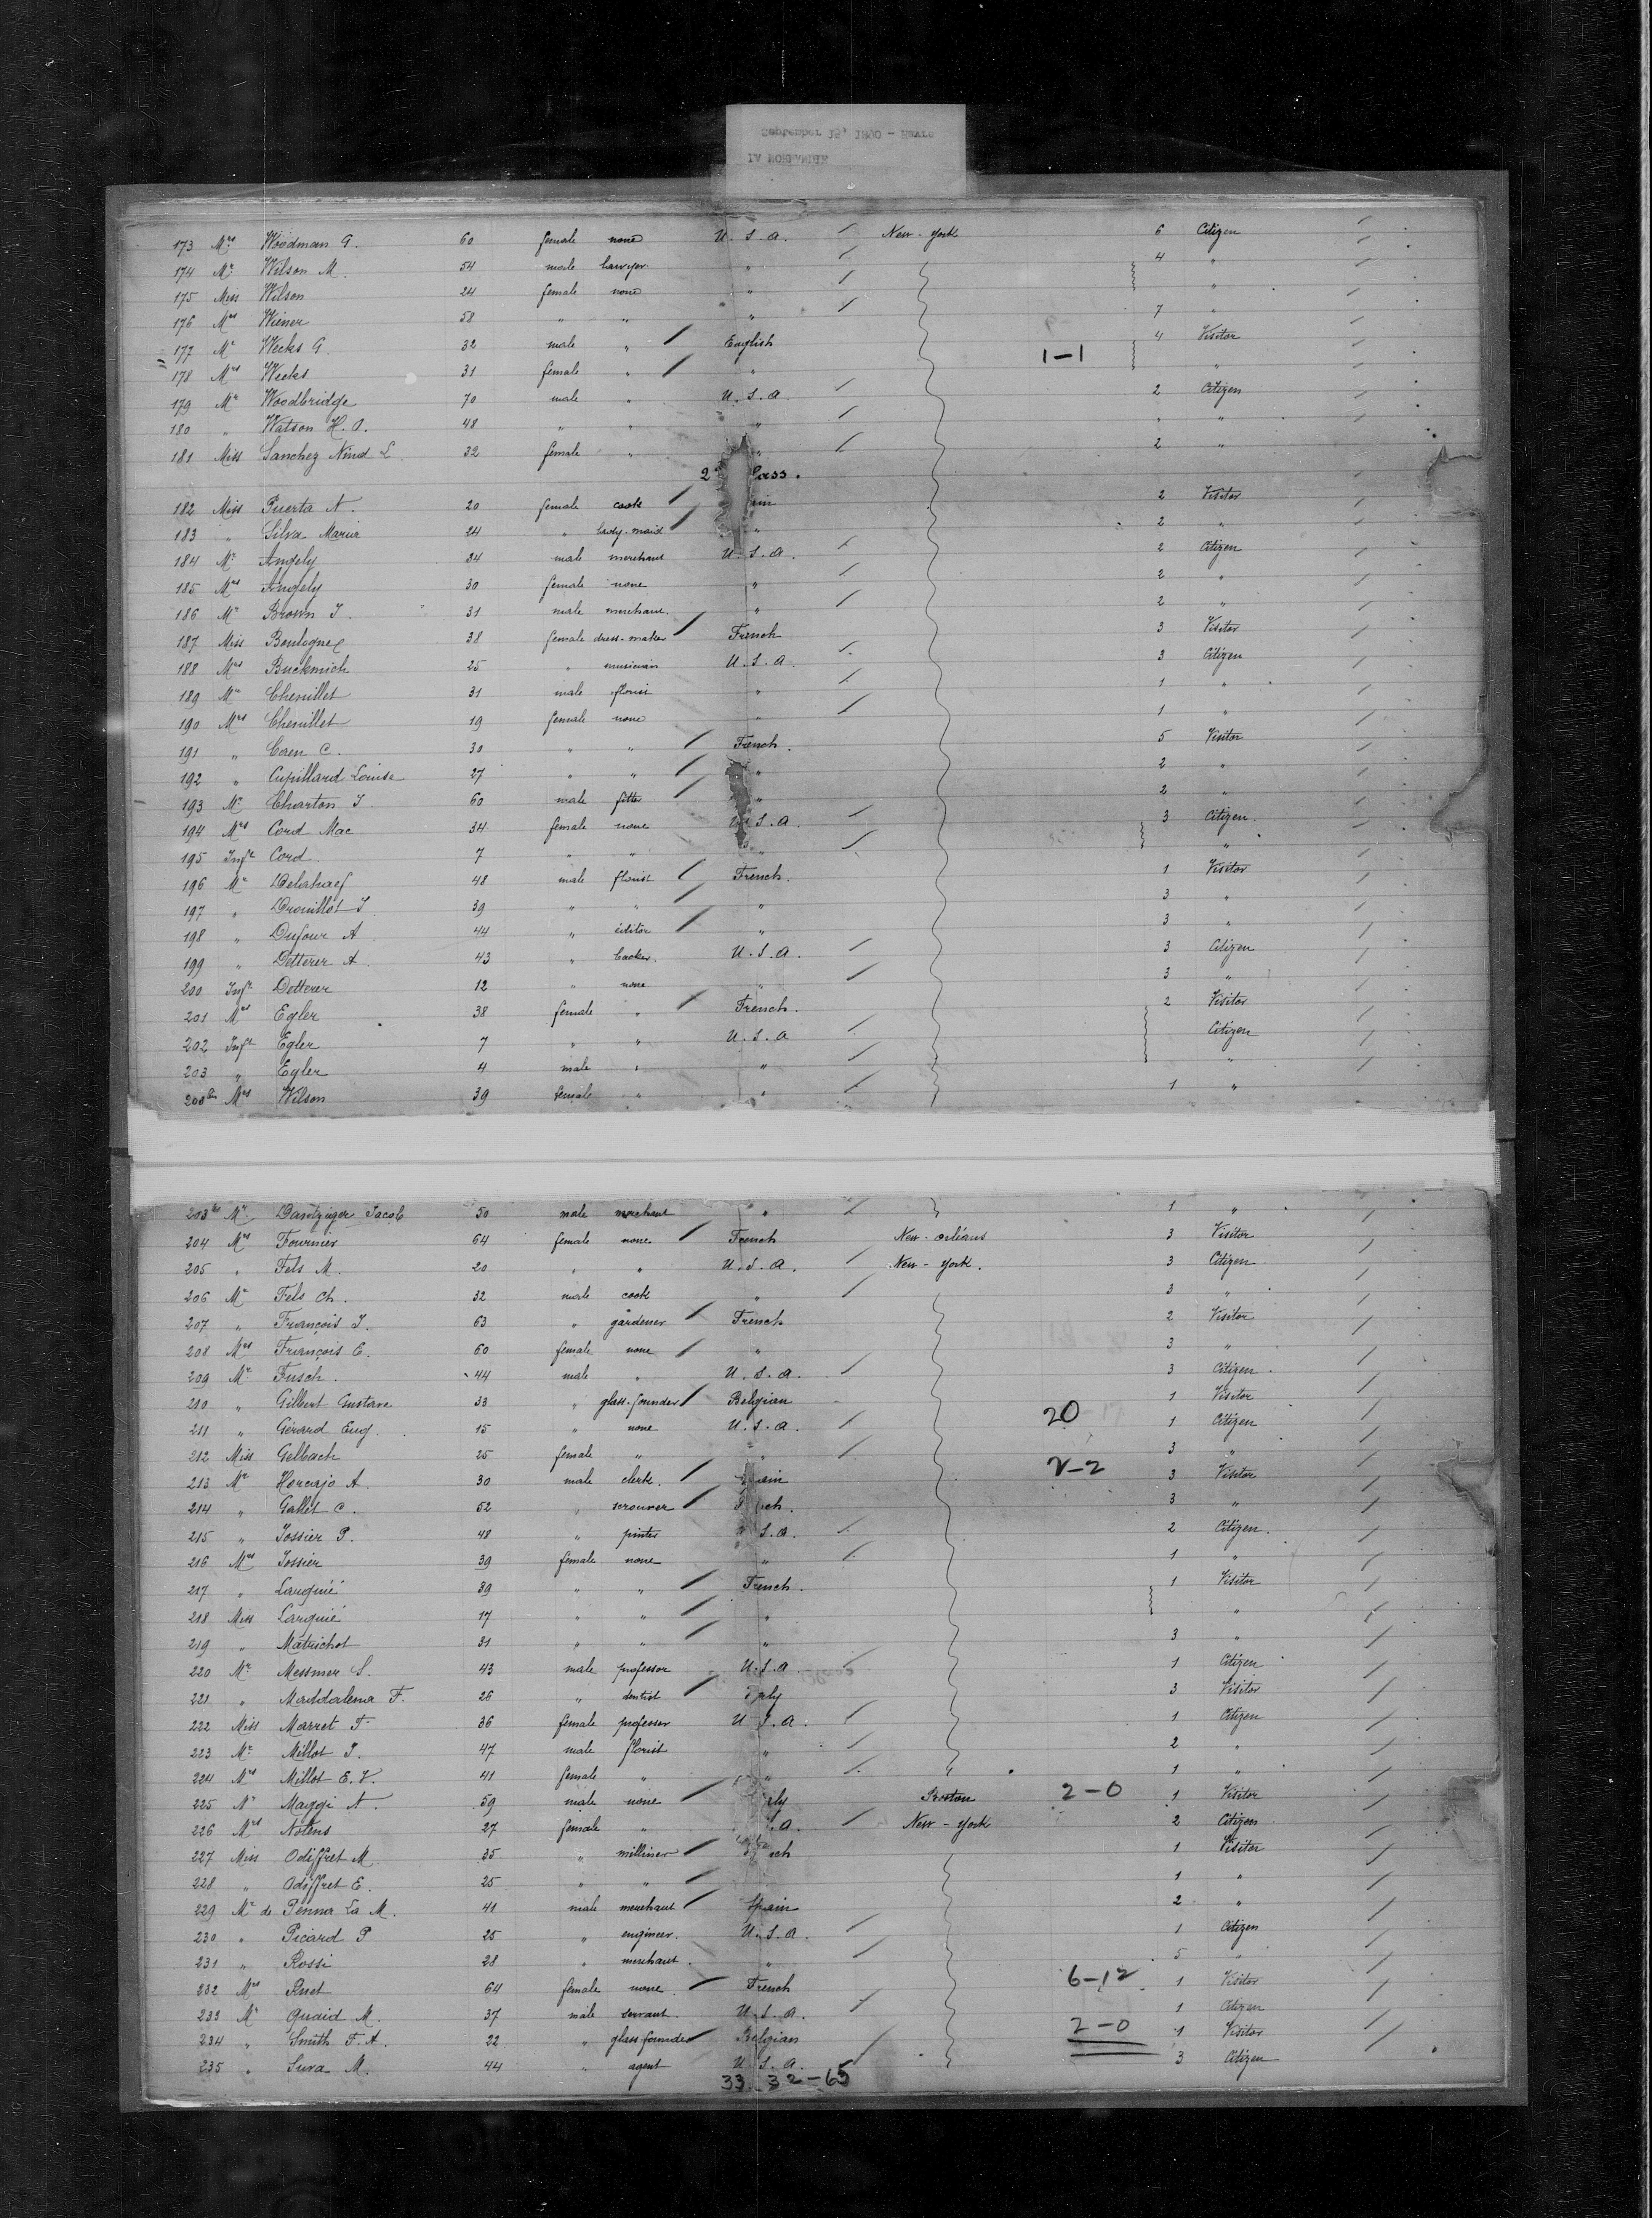 September 15, 1890 - Havre
LA NORMANDIE
173 Mrs Woodman G. 60 female none U.S.a. New-York 6 Citizen
174 Mr Wilson M. 54 male lawyer " 4 "
175 Miss Wilson 24 female none " "
176 Mrs Wiener 58 " " " 7
177 Mr Weeks G. 32 male " English 1-1 4 Visitor
178 Mrs Weeks 31 female " " "
179 Mr Woodbridge 70 male " U.S.a. 2 Citizen
180 " Watson H. 48 " " " " "
181 Miss Sanchez L. 32 female " " 2 "
182 Miss Puerta A. 20 female cook 2 Visitor
183 " Silva Maria 24 " lady-maid " 2 "
184 Mr Angely 34 male merchant U.S.a. 2 Citizen
185 Mrs Angely 30 female none " 2 "
186 Mr Brown J. 31 male merchant. " 2 "
187 Miss 38 female dress-maker French 3 Visitor
188 Mrs Buckmich 25 " musician U.S.a. 3 Citizen
189 Mr Chenillet 31 male florist " 1 "
190 Mrs Chenillet 19 female none " 1 "
191 " Coen C. 30 " " French. 5 Visitor
192 " Cupillard Louise 27 " " " 2 "
193 Mr Charton J. 60 male fitter " 2 "
194 Mrs Cord Mac 34 female none U.S.a. 3 Citizen.
195 Inft Cord 7 " " " "
196 Mr 48 male florist French. 1 Visitor
197 " Drouillot J. 39 " " " 3 "
198 " Dufour A. 44 " editor " 3 "
199 " Detterer A. 43 " U.S.a. 3 Citizen
200 Inft Detterer 12 " none " 3 "
201 Mrs Egler 38 female " French. 2 Visitor
202 Inft Egler 7 " " U.S.a Citizen
203 " Egler 4 male " " "
203 Mrs Wilson 39 female " " 1 "
203 Mr Dantziger Jacob 50 male merchant " 1 "
204 Mrs Fournier 64 female none French New-orléans 3 Visitor
205 " Fels M. 20 " " U.S.a. New-York. 3 Citizen
206 Mr Fels Ch. 32 male cook " 3 "
207 " François J. 63 " gardener French 2 Visitor
208 Mrs François E. 60 female none " 3 "
209 Mr Fusch. 44 male " U.S.a. 3 Citizen.
210 " Gilbert Gustave 33 " glass-founder Belgian 1 Visitor
211 " Gérard Eug. 15 " none U.S.a. 20 1 Citizen
212 Miss Gelbach 25 female " " 3 "
213 Mr A. 30 male clerk. Spain 2-2 3 Visitor
214 " Gallet C. 52 " 3 "
215 " Jossier P. 48 " U.S.a. 2 Citizen.
216 Mrs Jossier 39 female none " 1 "
217 " Larguié 39 " " French. 1 Visitor
218 Miss Larguié 17 " " " "
219 " Matrichot 31 " " " 3 "
220 Mr Messmer S. 43 male professor U.S.a. 1 Citizen
221 " Maddalena F. 26 " dentist 3 Visitor
222 Miss Marret F. 36 female professor U.S.a. 1 Citizen
223 Mr Millot J. 47 male florist " 2 "
224 Mrs Millot E.V. 41 female " " " 1 "
225 Mr Maggi A. 59 male none Boston 2-0 1 Visitor
226 Mrs Notens 27 female " New-York 2 Citizen
227 Miss Odiffret M. 35 " milliner 1 Visitor
228 " Odiffret E. 25 " " 1 "
229 Mr de Penna La M. 41 male merchant Spain 2 "
230 " Picard P 25 " engineer. U.S.a. 1 Citizen
231 " Rossi 28 " merchant. " 5 "
232 Mrs Ruet 64 female none. French 6-12 1 Visitor
233 Mr Quaid M. 37 male servant. U.S.a. 1 Citizen
234 " Smith F.A. 22 " glass-founder Belgian 2-0 1 Visitor
235 " Sura M. 44 " agent U.S.a. 3 Citizen
33 32-65